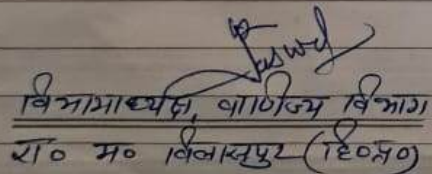 विभागाध्यक्ष, वाणिज्य विभाग
रा० म० बिलासपुर (हि०प्र०)